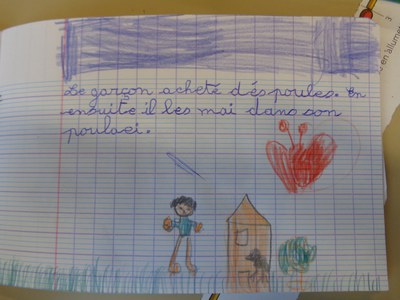 Le garçon acheté dés poules. En
ensuite il les mai dans son
poulaei.